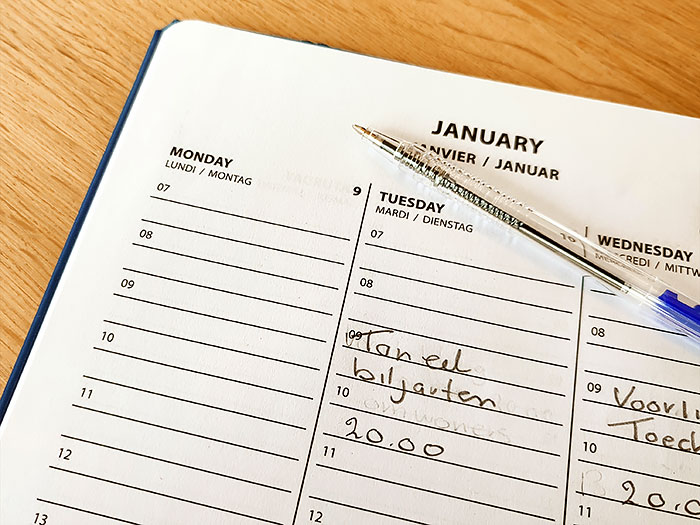 JANUARY
ANVIER / JANUAR
MONDAY 9
LUNDI / MONTAG
07
08
09
10
11
12
13
TUESDAY 10
MARDI / DIENSTAG
07
08
09
Tan eel
biljarten
10
20.00
11
12
WEDNESDAY
MERCREDI / MITTW
08
09 Voorli
Toech
10
20.0
11